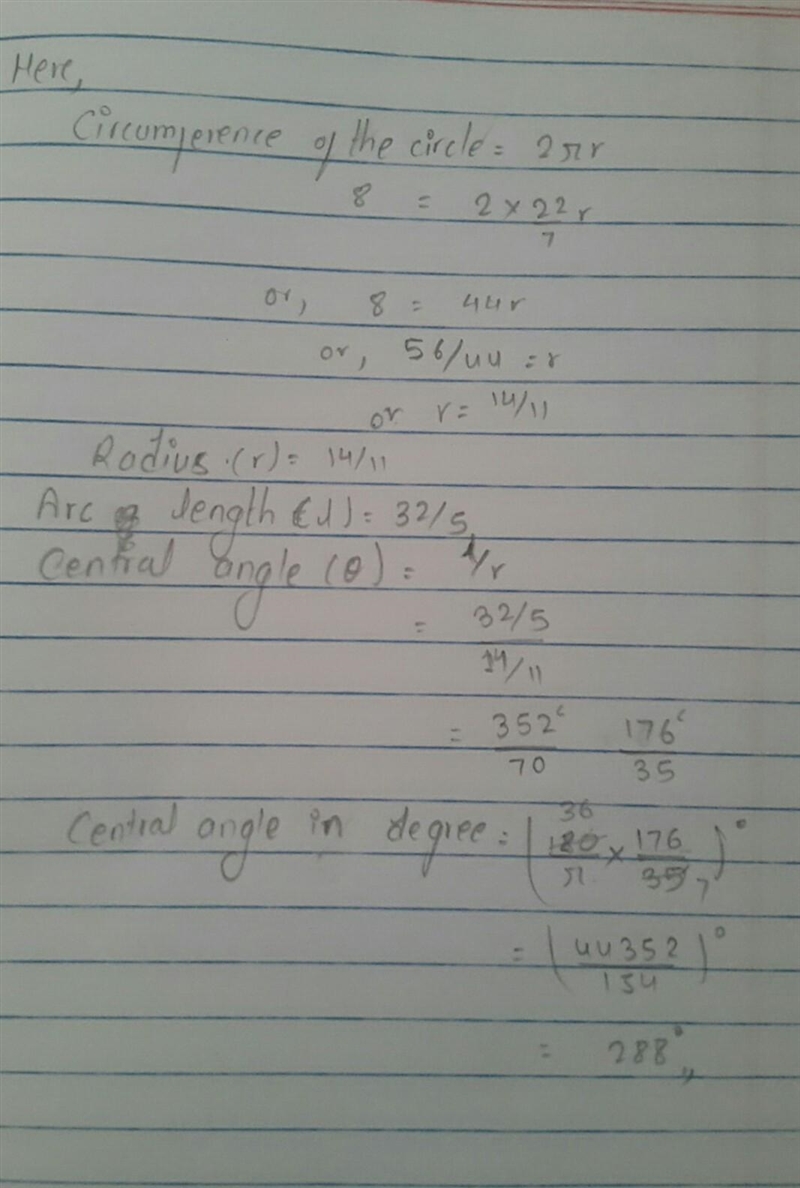 Here,
Circumference of the circle = 2πr
8 = 2 × 22/7 r
or, 8 = 44r
or, 56/44 = r
or r = 14/11
Radius (r) = 14/11
Arc length (l) = 32/5
Central angle (θ) = l/r
= 32/5 / 14/11
= 352ᶜ/70 176ᶜ/35
Central angle in degree = (36 180/π × 176/35 7)°
= (44352/154)°
= 288°,,